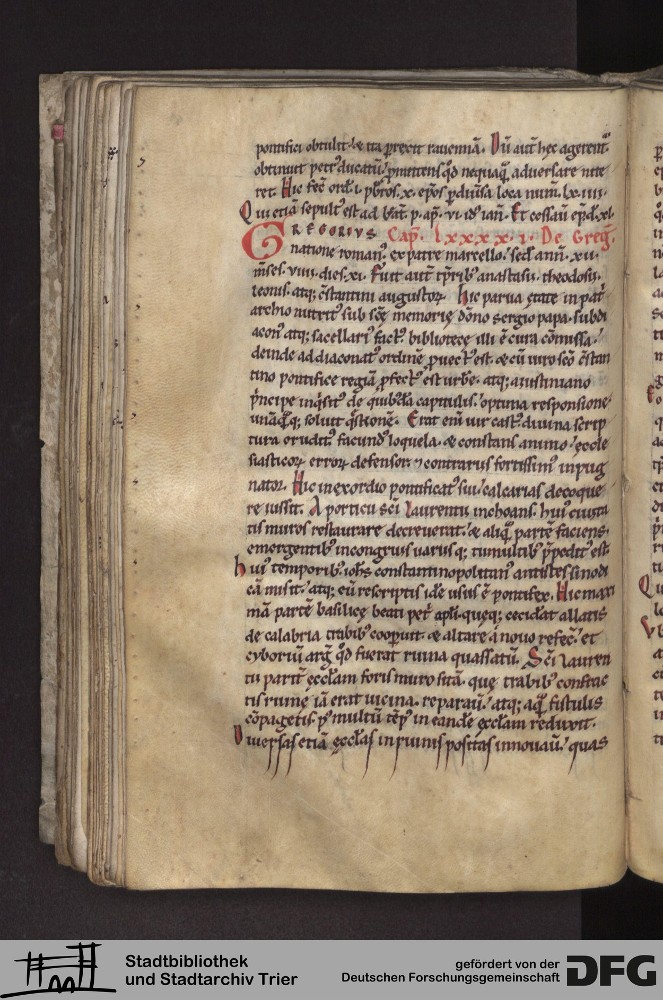 pontifici obtulit· & ita ꝑrexit rauennā. Dū aut̄ hec agerent᷑
obtinuit petr᷒ ducatū· ꝓmittens qd̄ nequaquā aduersare nite
ret. Hic fec̄ ord̄· i· pb̄ros· x· ep̄os ꝑ diuersa loca num̄· lx· iiii·
Qui etiā sepult᷒ est ad beat̄· p· ap̄· vi· id᷒ ian̄· Et cessauit ep̄d̄· xl·
GREGORIVS Cap̄· Lxxxx·i· De Greḡ·
natione roman᷒· ex patre marcello· sed̄ ann̄· xvi·
m̄ses· viiii· dies· xi· Fuit aut̄ tp̄rib᷒ anastasii· theodosii·
leonis· atq; c̄stantini augustoꝝ· Hic parua ętate in pat̄
archio nutrit᷒ sub scę memorię dōno sergio papa· subdi
acon᷒ atq; sacellari᷒ fact᷒· bibliotecę illi ē cura cōmissa·
deinde ad diaconat᷒ ordinē ꝓuect᷒ est· & cū uiro scō c̄stan
tino pontifice regiā ꝓfect᷒ est urbē· atq; a iustiniano
p̄ncipe inq̇sit᷒ de quib᷒dā capitulis· optima responsione
unāq̄q; soluit q̄stionē· Erat enī uir cast᷒ diuina scrip
tura erudit᷒ facund᷒ loquela· & constans animo· ęccle
siasticoꝝ erroꝝ defensor· ⁊ contrariis fortissim᷒ inpug
nator· Hic in exordio pontificat᷒ sui· calcarias decoque
re iussit· A porticu sc̄i laurentii inchoans· hui᷒ ciuita
tis muros restaurare decreuerat· & aliq̄ partē faciens·
emergentib᷒ incongruis uariisq; tumultib᷒ p̄pedit᷒ est·
hui᷒ temporib᷒ ioh̄s constantinopolitan᷒ antistes sinodi
cā misit· atq; eū rescriptis idē usus ē pontifex· Hic maxi
mā partē basilicę beati petri apl̄i· quęq; ceciderat allatis
de calabria trabib᷒ cooperuit· & altare a nouo refec̄· et
cyboriū arḡ· qd̄ fuerat ruina quassatū· Sc̄i lauren
tii parit̄ ęccl̄am foris muro sitā· quę trabib᷒ confrac
tis ruinę iā erat uicina· reparauit· atq; aquā fistulis
cōpagetis· p᷒ multū tēp᷒ in eandē ęccl̄am reduxit·
Diuersas etiā ęccl̄as in ruinis positas innouauit· quas
Stadtbibliothek
und Stadtarchiv Trier
gefördert von der
Deutschen Forschungsgemeinschaft
DFG